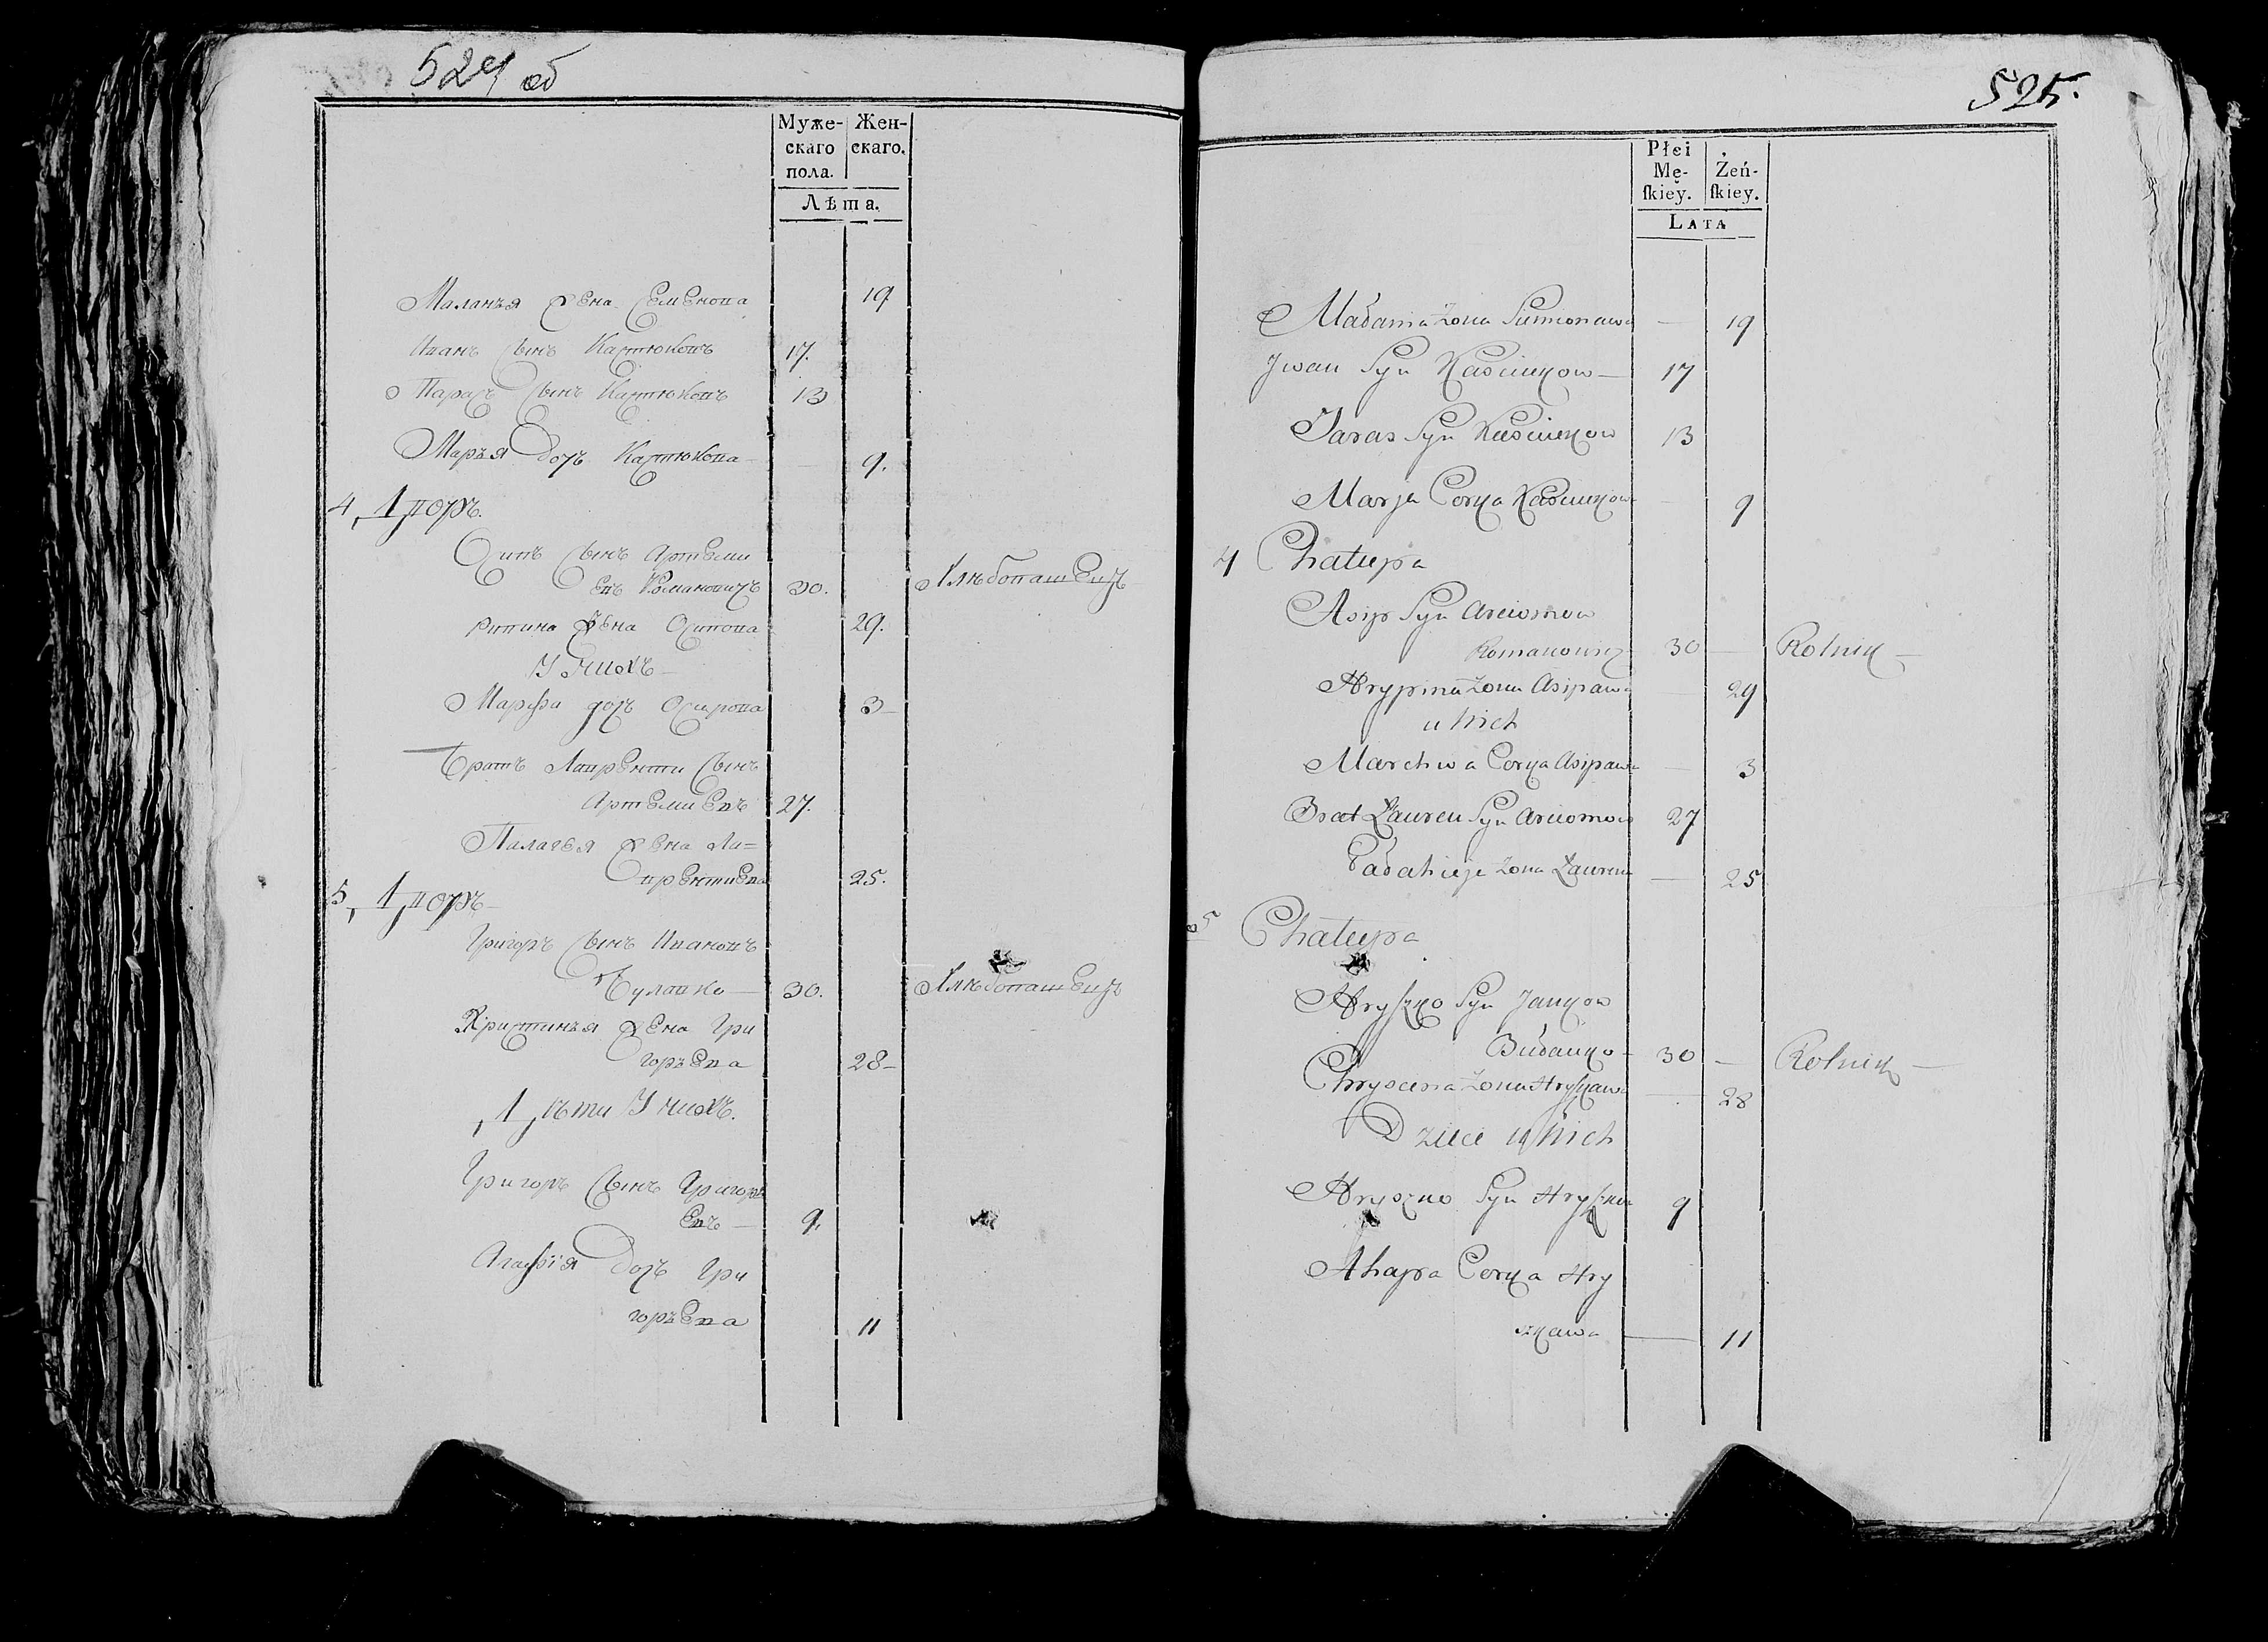 524 об
Муже-
скаго
пола.
Жен-
скаго.
Лѣта.
Маланъя жена Семенова 19
Иванъ сынъ Кастюковъ 17.
Тарасъ сынъ Кастюковъ 13
Маръя дочъ Кастюкова 9.
4, Дворъ.
Осипъ сынъ Артеми
евъ Романовичъ 30. Хлѣбопашецъ
жена Осипова 29.
У нихъ
Марфа дочъ Осипова 3
братъ Лаврентти сынъ
Артемиевъ 27.
Палагея жена Ла=
врентиева 25.
5, Дворъ
Григоръ сынъ Ивановъ
Булавко 30. Хлѣбопашецъ
Кристинъя жена Гри
горъева 28
Дѣти У нихъ.
Григоръ сынъ Григоръ
евъ 9.
Агафія дочъ Гри
горъева 11
525.
Płei
Mę-
ſkiey.
Żeń-
ſkiey.
LATA
Małania żona 19
Jwan Syn Kaściukow 17
Taras Syn Kaściukow 13
Marja Corka Kaściukow 9
4 Chałupa
Asip Syn Arciomow
Romanowicz 30 Rolnik
Hrypina żona Asipawa 29
u Nich
Marchwa Corka Asipawa 3
Brat Łauren Syn Arciomow 27
żona Łauren 25
5 Chałupa
Hryſzko Syn Jankow
Bułauko 30 Rolnik
Chryscina żona Hryſzkawa 28
Dzieci u Nich
Hryszko Syn Hryſzkow 9
Ahapa Corka Hry
szkawa 11